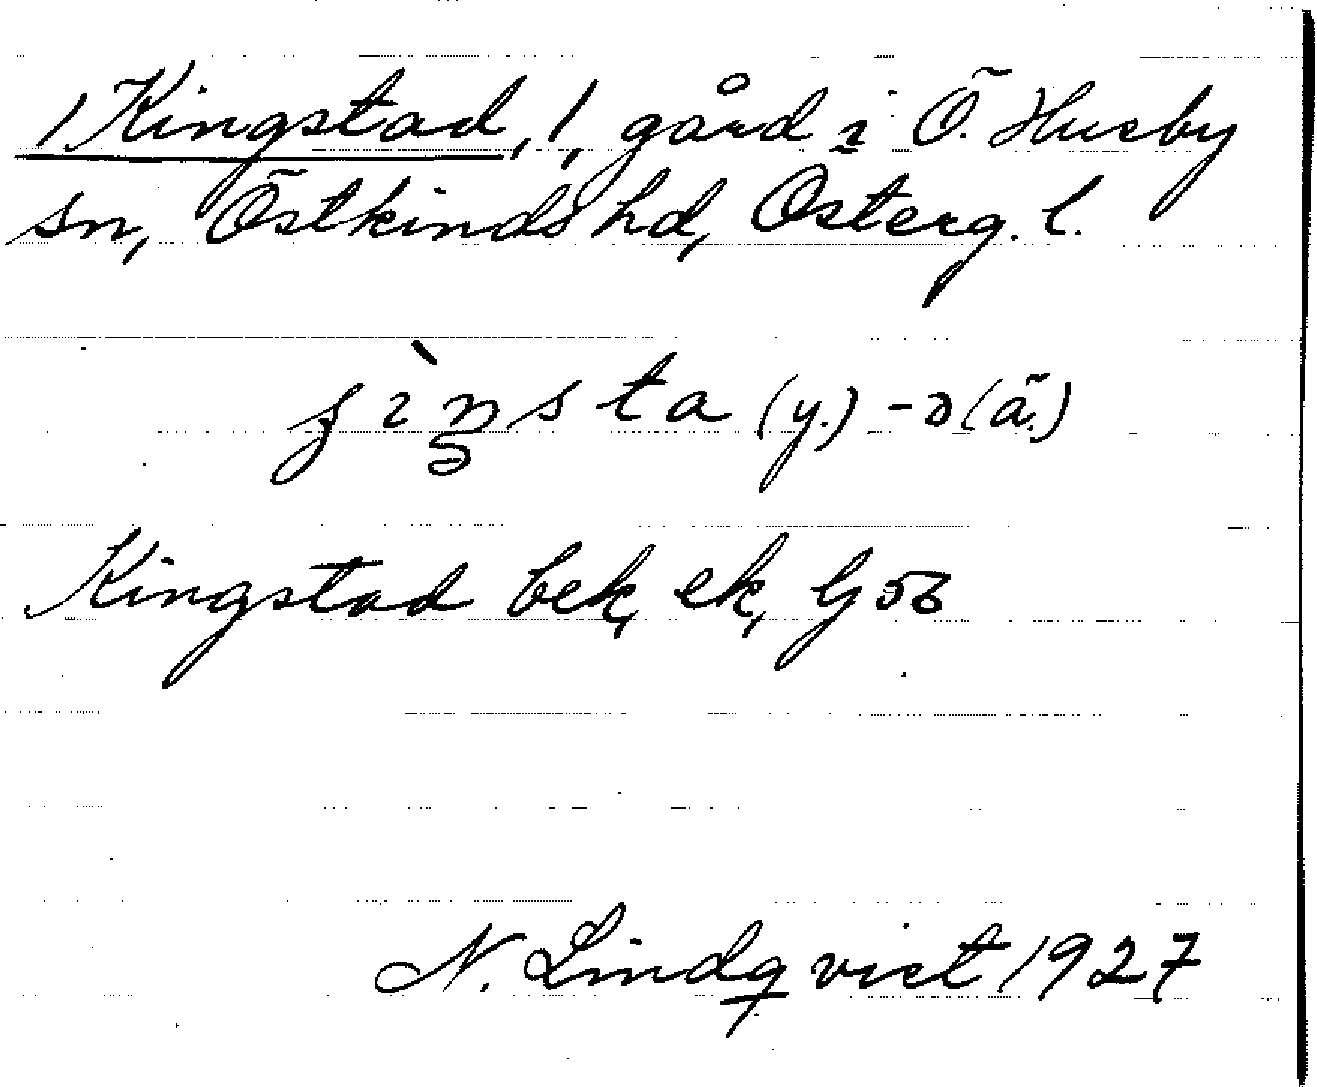 1 Kingstad, 1, gård i Ö. Husby
sn, Östkinds hd, Österg. l.
sta (y.) -ə (ä.)
Kingstad bek, ek, Gj 56
N. Lindqvist 1927